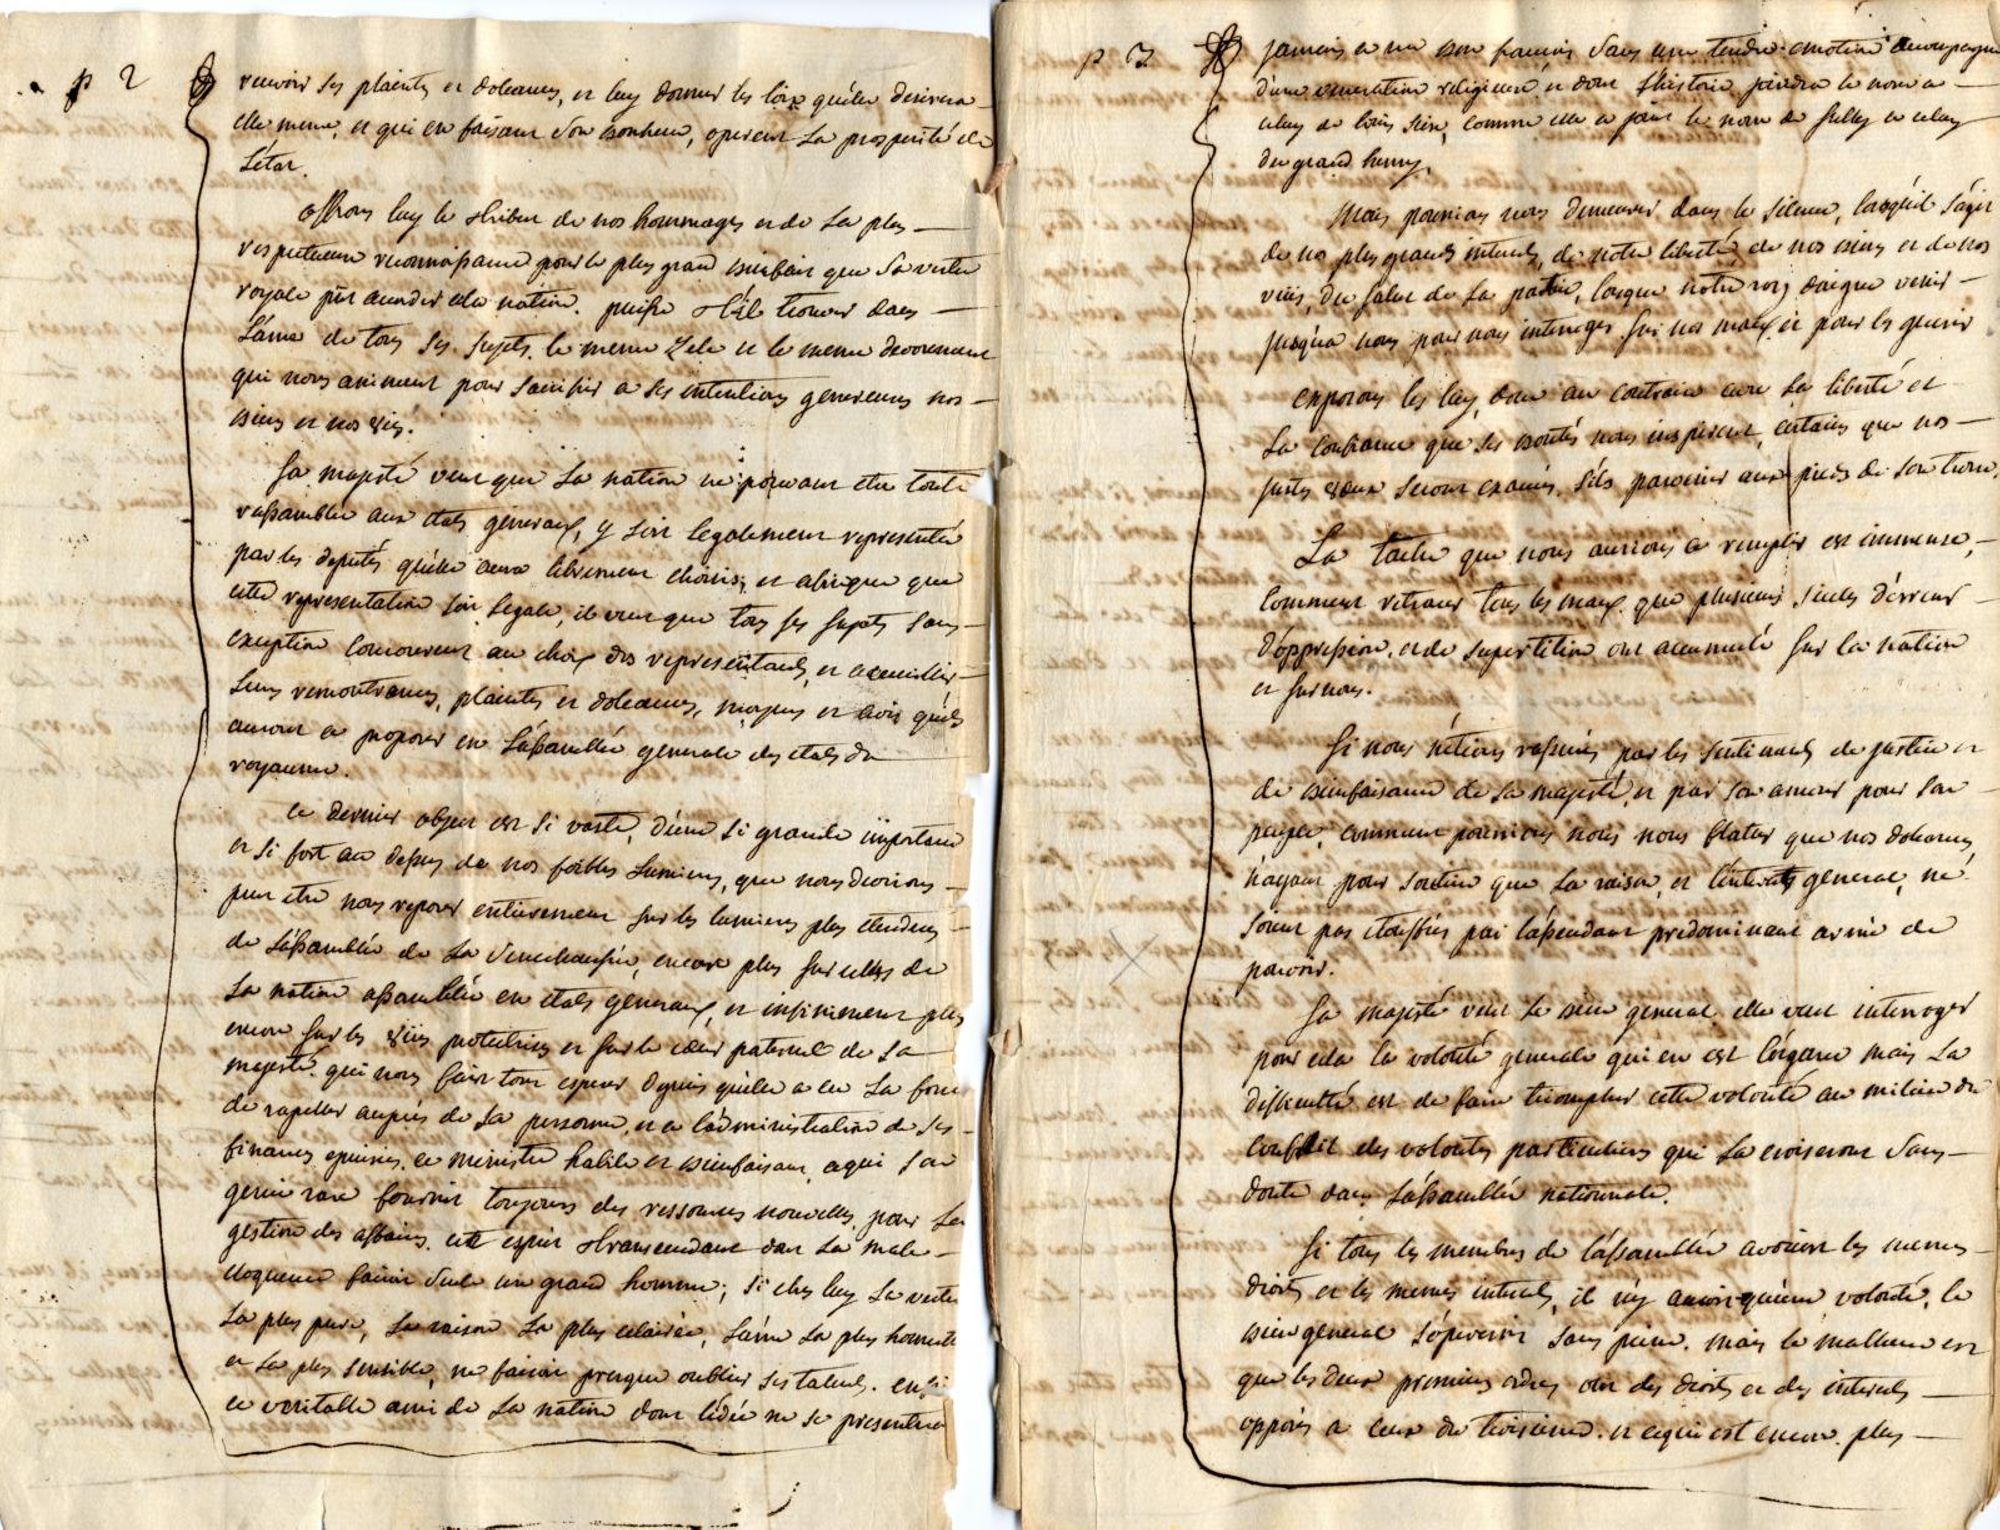 p 2
recevoir ses plaintes et doleances, et luy donner les loix qu'elle desirera
elle meme, et qui en faisant son bonheur, operent la prosperité de
L'état.
offrons luy le tribut de nos hommages et de la plus
respectueuse reconnoissance pour le plus grand bienfait que sa vertu
royale put accorder a la nation. puisse t'il trouver dans
L'ame de tous ses sujets le meme zele et le meme devouement
qui nous animent pour sacrifier a ses intentions genereuses nos
biens et nos vies.
Sa majesté veut que la nation ne pouvant etre toute
rassamblée aux etats generaux, y soit legalement representée
par les deputés qu'elle aura librement choisis, et afin que
cette representation soit legale, il veut que tous ses sujets sans
exception concourent au choix des representants, et accueillir
leurs remontrances, plaintes et doleances, moyens et avis qu'ils
auront a proposer en L'assamblée generale des etats du
royaume.
ce dernier objet est si vaste, d'une si grande importance
et si fort au dessus de nos foibles lumieres, que nous devrions
peut etre nous reposer entierement sur les lumieres plus etendues
de L'assamblée de la Senechaussée, encore plus sur celles de
la nation assamblée en etats generaux, et infiniment plus
encore sur les vües protectrices et sur le cœur paternel de sa
majesté. qui nous fait tout esperer depuis qu'elle a eu la force
de rapeller auprés de sa personne, et a l'administration de ses
finances epuisées, ce ministre habile et bienfaisant, a qui son
genie rare fournit toujours des ressources nouvelles, pour la
gestion des affaires. cet esprit transcendant dont la male
eloquence feroit seule un grand homme; si chez luy la vertu
la plus pure, la raison la plus eclairée, L'ame la plus honnete
et la plus sensible, ne faisoit presque oublier ses talents. enfin
ce veritable ami de la nation dont l'idée ne se presentera
p 3
jamais a un bon francois sans une tendre emotion accompagnée
d'une veneration religieuse, et dont l'histoire joindra le nom a
celuy de louis seize, comme elle a joint le nom de sully a celuy
du grand henry.
Mais pourrions nous demeurer dans le silence, lorsqu'il s'agit
de nos plus grands interets, de notre liberté, de nos biens et de nos
vies, du salut de la patrie, lorsque notre roy daigne venir
jusqu'a nous pour nous interroger sur nos maux et pour les guerir
exposons les luy donc au contraire avec la liberté et
la confiance que ses bontés nous inspirent, certains que nos
justes vœux seront exaucés, s'ils parviennent aux pieds de son trone.
La tache que nous aurions a remplir est immense,
comment retracer tous les maux que plusieurs siecles d'erreur
d'oppression, et de superstition ont accumulé sur la nation
et sur nous.
Si nous n'étions rassurés par les sentiments de justice et
de bienfaisance de sa majesté, et par son amour pour son
peuple, comment pourrions nous nous flater que nos doleances,
n'ayant pour soutien que la raison, et l'interets general, ne
soient pas etouffées par l'assendant predominant armé de
pouvoir.
Sa majesté veut le bien general. elle veut interroger
pour cela la volonté generale qui en est l'organe mais la
difficulté est de faire triompher cette volonté au milieu du
conflit des volontes particulieres qui la croiseront sans
doute dans L'assamblée nationnale.
Si tous les membres de l'assamblée avoient les memes
droits et les memes interets, il n'y auroit qu'une volonté, le
bien general s'opereroit sans peine. mais le malheur est
que les deux premiers ordres ont des droits et des interets
opposés a ceux du troisieme. et ce qui est encore plus